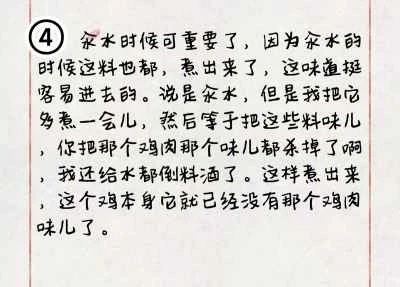 ④ 汆水时候可重要了，因为汆水的
时候这料也都，煮出来了，这味道挺
容易进去的。说是汆水，但是我把它
多煮一会儿，然后等于把这些料味儿
，你把那个鸡肉那个味儿都杀掉了啊
，我还给水都倒料酒了。这样煮出来
，这个鸡本身它就已经没有那个鸡肉
味儿了。